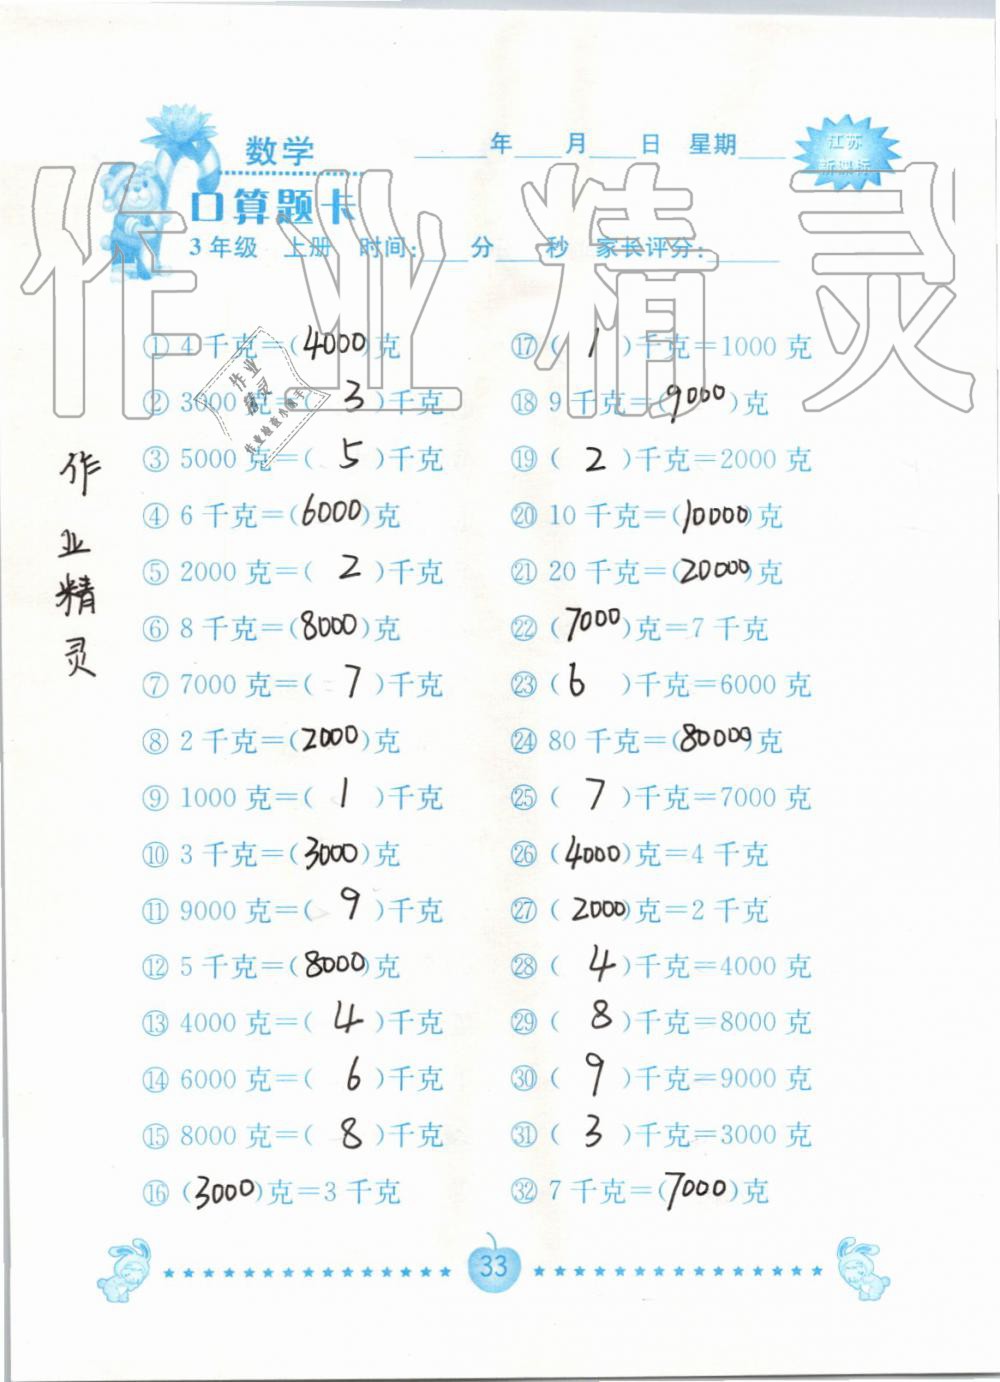 数学
____年____月____日 星期____
江苏
新课标
口算题卡
3年级 上册 时间:____分____秒 家长评分:____
作业精灵
① 4千克=(4000)克
② 3000克=(3)千克
作业
精灵
作业检查小能手
③ 5000克=(5)千克
④ 6千克=(6000)克
⑤ 2000克=(2)千克
⑥ 8千克=(8000)克
⑦ 7000克=(7)千克
⑧ 2千克=(2000)克
⑨ 1000克=(1)千克
⑩ 3千克=(3000)克
⑪ 9000克=(9)千克
⑫ 5千克=(8000)克
⑬ 4000克=(4)千克
⑭ 6000克=(6)千克
⑮ 8000克=(8)千克
⑯ (3000)克=3千克
⑰ (1)千克=1000克
⑱ 9千克=(9000)克
⑲ (2)千克=2000克
⑳ 10千克=(10000)克
㉑ 20千克=(20000)克
㉒ (7000)克=7千克
㉓ (6)千克=6000克
㉔ 80千克=(80000)克
㉕ (7)千克=7000克
㉖ (4000)克=4千克
㉗ (2000)克=2千克
㉘ (4)千克=4000克
㉙ (8)千克=8000克
㉚ (9)千克=9000克
㉛ (3)千克=3000克
㉜ 7千克=(7000)克
作
业
精
灵
33